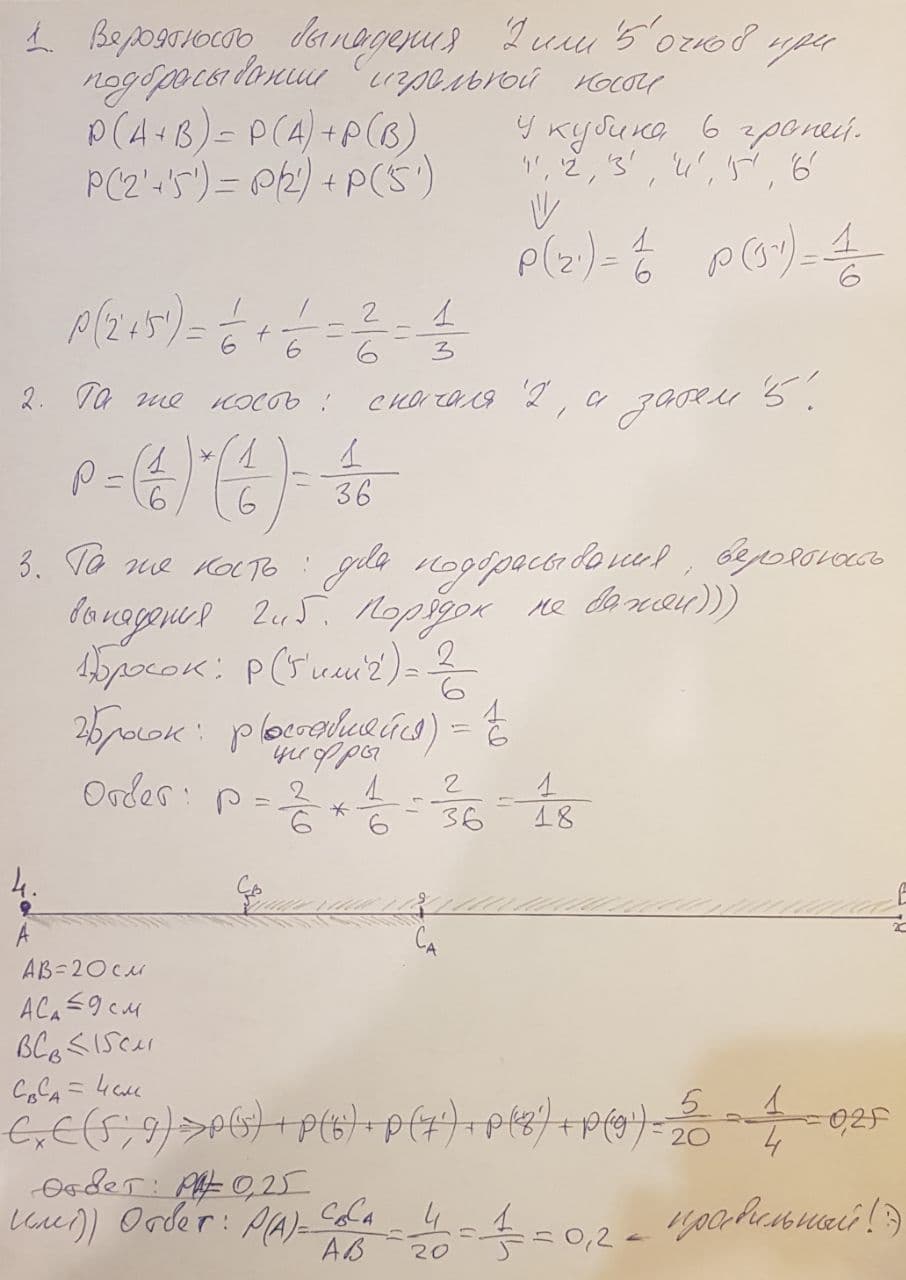 1. Вероятность выпадения '2' или '5' очков при
подбрасывание игральной кости
P(A+B)=P(A)+P(B)
P('2'+'5')=P('2')+P('5')
У кубика 6 граней.
'1', '2', '3', '4', '5', '6'
⇓
P('2')=1/6 P('5')=1/6
P('2'+'5')=1/6+1/6=2/6=1/3
2. Та же кость: сначала '2', а затем '5'.
P=(1/6)*(1/6)=1/36
3. Та же кость: два подбрасывания, вероятность
выпадения 2 и 5. Порядок не важен)))
1)Бросок: P('5' или '2')=2/6
2)Бросок: P(оставшейся цифры)=1/6
Ответ: P=2/6*1/6=2/36=1/18
4.
C_B 9 B
A C_A x
AB=20см
AC_A≤9см
BC_B≤15см
C_BC_A=4см
C_x∈(5;9)⇒P('5')+P('6')+P('7')+P('8')+P('9')=5/20=1/4=0,25
Ответ: P(A)=0,25
или)) Ответ: P(A)=C_BC_A/AB=4/20=1/5=0,2 - правильный!:)